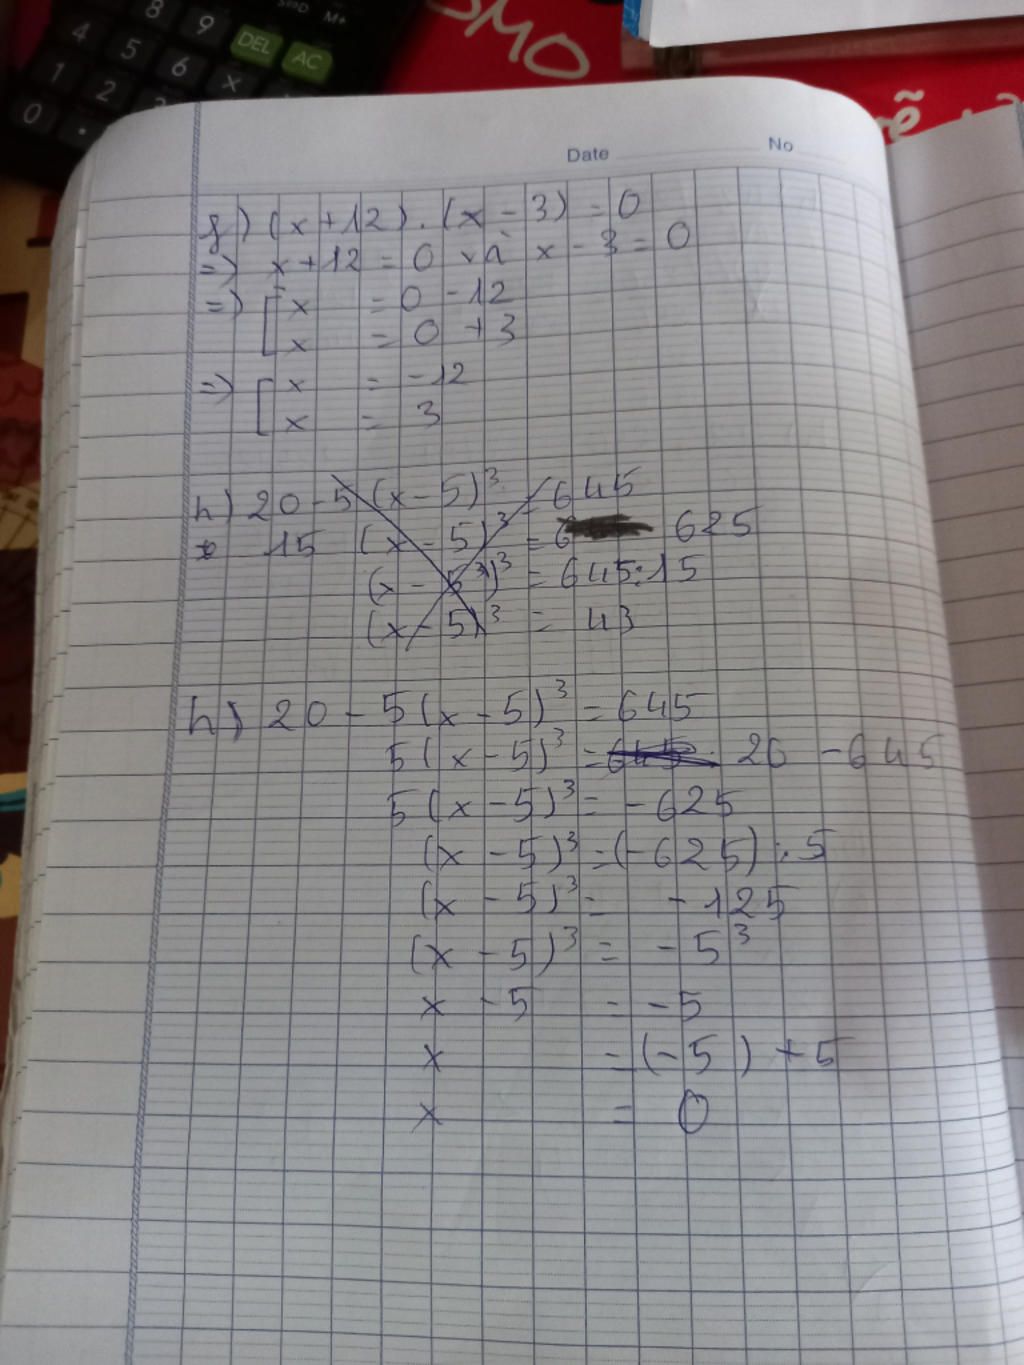 8 9 S⇔D M+
4 5 6 DEL AC
1 2 3 ×
0 .
SMO
rẽ
Date No
g) (x+12).(x-3)=0
=> x+12=0 và x-3=0
=> [x = 0-12
x = 0+3
=> [x = -12
x = 3
h) 20-5(x-5)³=645
15 (x-5)³=6 625
(x-5³)³=645:15
(x-5)³ = 43
h) 20-5(x-5)³=645
5(x-5)³=645 20-645
5(x-5)³=-625
(x-5)³=(-625):5
(x-5)³= -125
(x-5)³= -5³
x-5 = -5
x =(-5)+5
x = 0